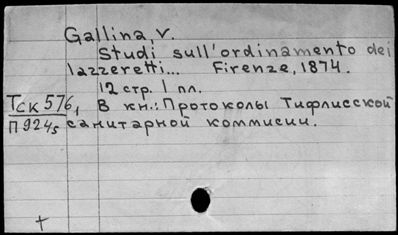 Gallina, V.
Studi sull'ordinamento dei
lazzeretti... Firenze, 1874.
12 стр. 1 пл.
Тск 576, В кн.: Протоколы Тифлисской
П 924s санитарной коммисии.
+